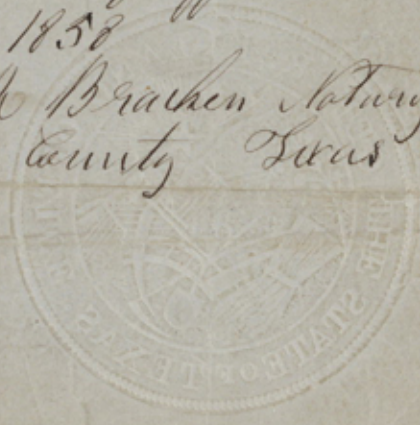 1858
Bracken Notary
County Texas
THE STATE OF TEXAS